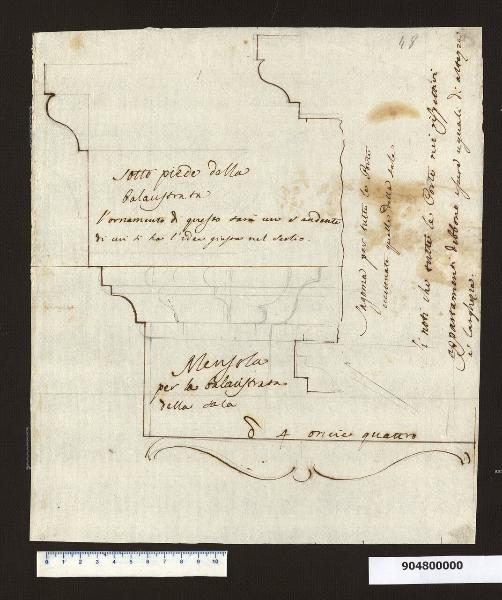 48
Sotto piede della
balaustrata
l'ornamento di questo sarà un s'andante
di cui si ha l'idea giusta nel Serlio.
Mensola
per la balaustrata
della sala
4 oncie quattro
Sagoma per tutte le Porte
eccettuate quelle della sala
Si noti che tutte le Porte nei rispettivi
appartamenti debbono essere uguali di altezza
e larghezza.
0 1 2 3 4 5 6 7 8 9 10
904800000